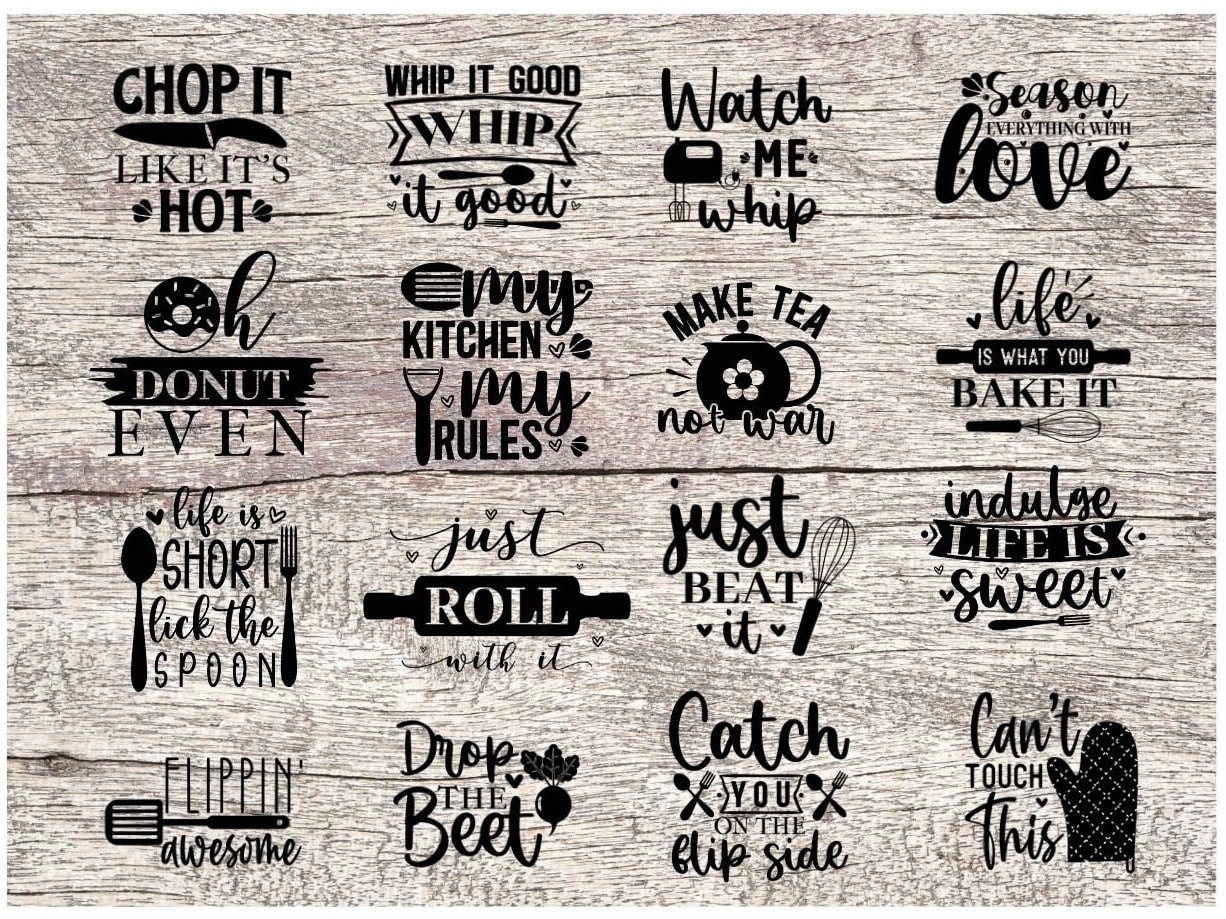 CHOP IT
LIKE IT'S
HOT
WHIP IT GOOD
WHIP
it good
Watch
ME
whip
Season
EVERYTHING WITH
love
Oh
DONUT
EVEN
my
KITCHEN
my
RULES
MAKE TEA
not war
life
IS WHAT YOU
BAKE IT
life is
SHORT
lick the
SPOON
just
ROLL
with it
just
BEAT
it
indulge
LIFE IS
sweet
FLIPPIN'
awesome
Drop
THE
Beet
Catch
YOU
ON THE
flip side
Can't
TOUCH
This